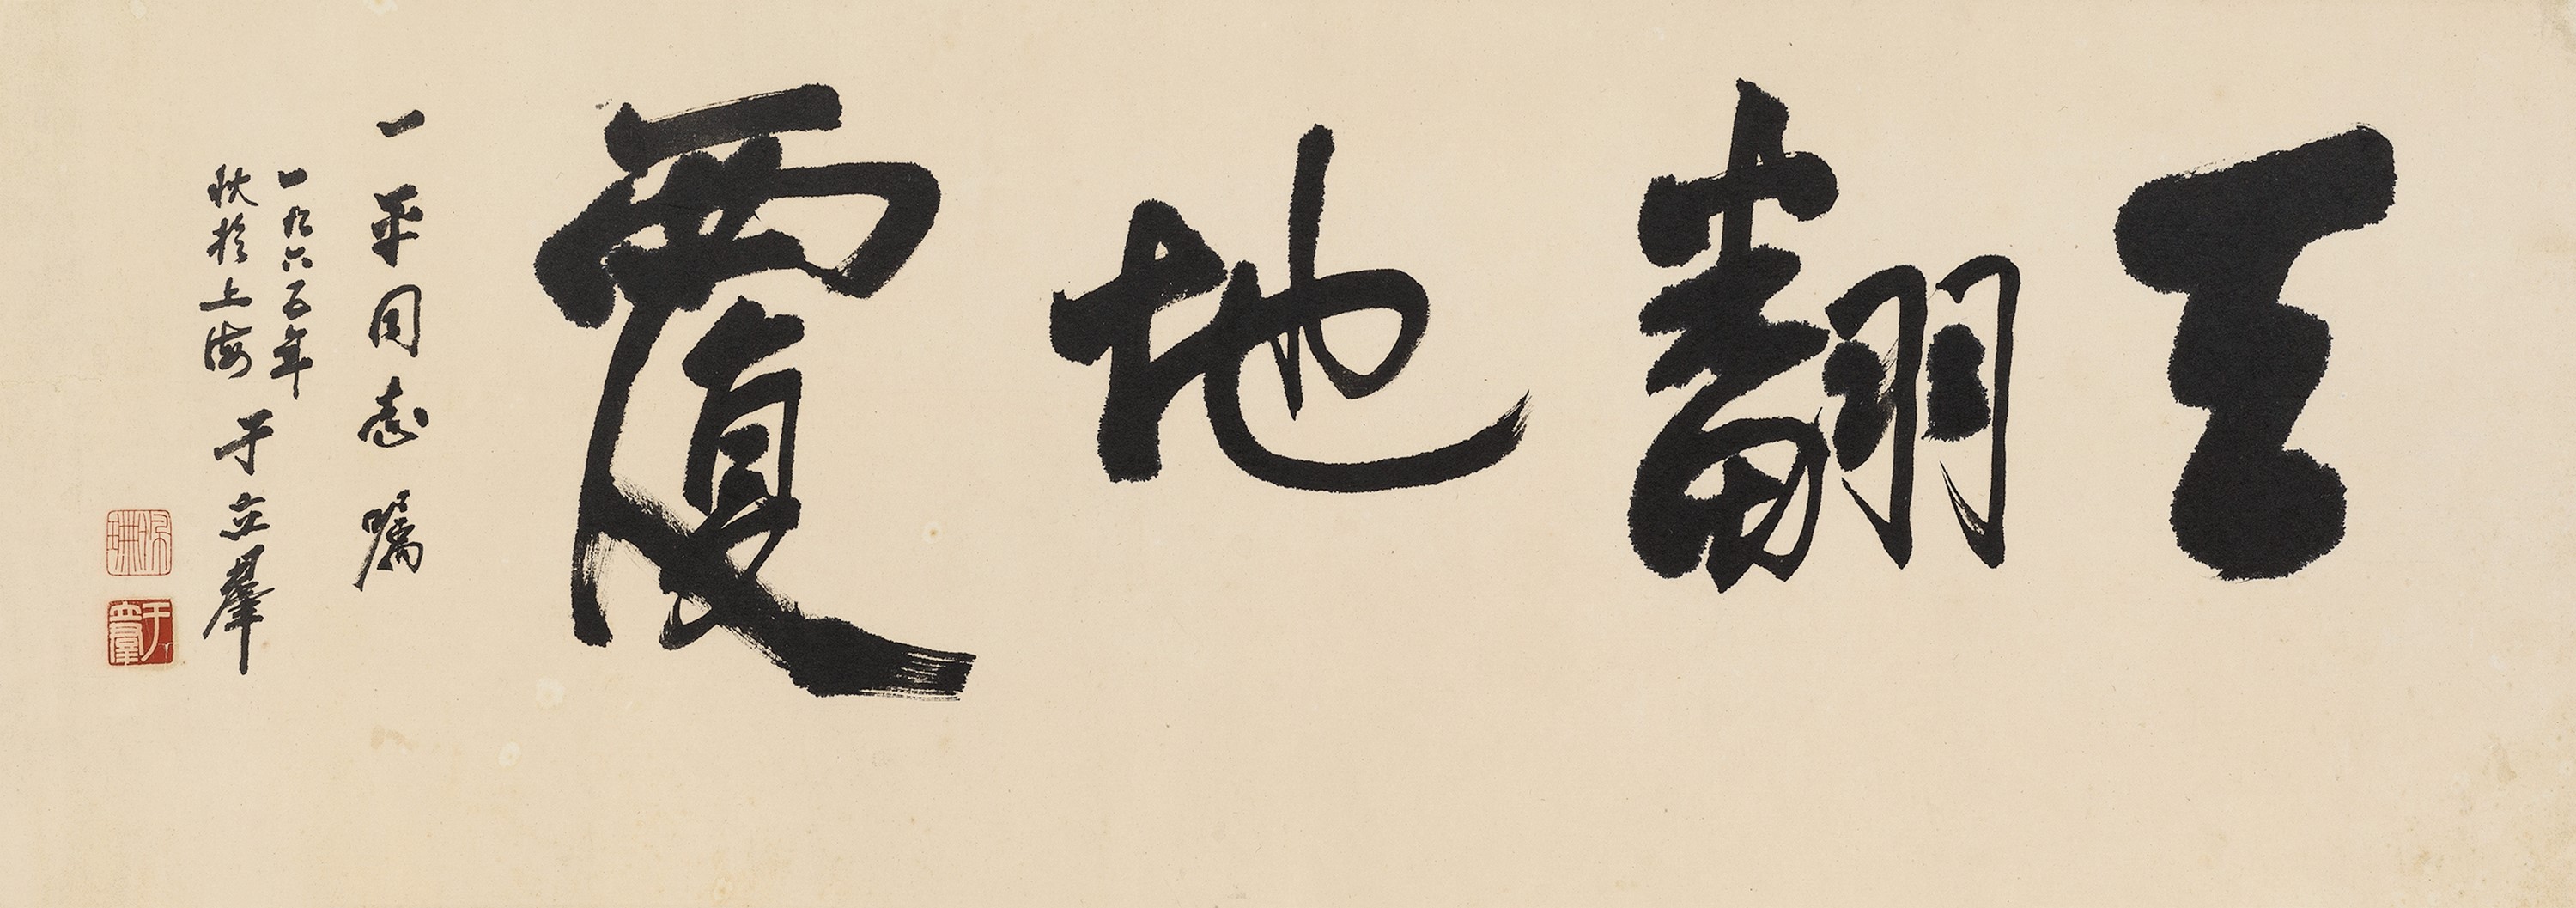 天翻地覆
一平同志嘱
一九六五年
秋於上海 于立羣
于立群